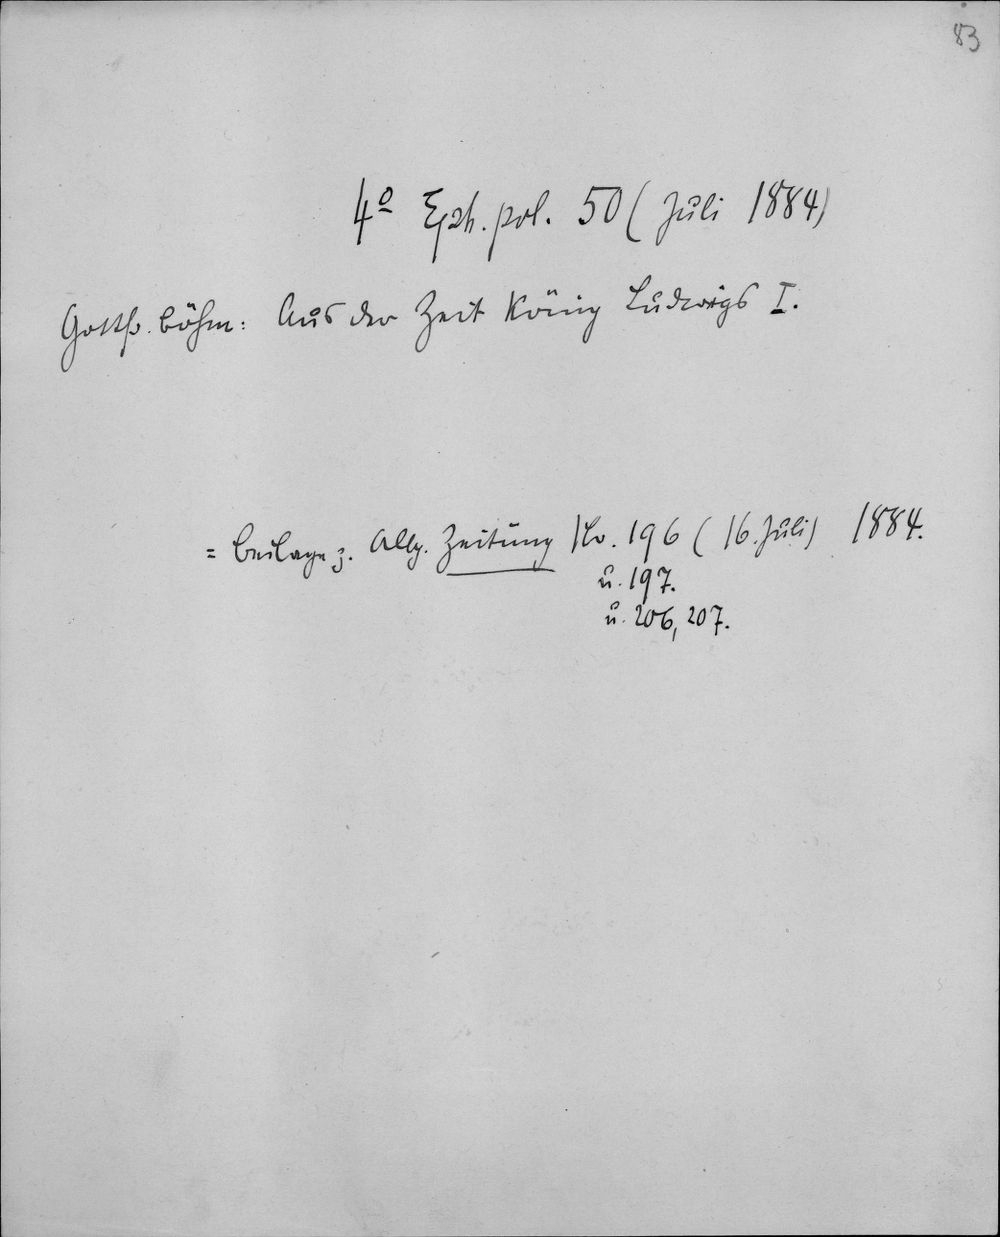 83
4º Eph. pol. 50 (Juli 1884)
Gottfr. Böhm: Aus der Zeit König Ludwigs I.
= Beilage z. Allg. Zeitung Nr. 196 (16. Juli) 1884.
u. 197.
u. 206, 207.